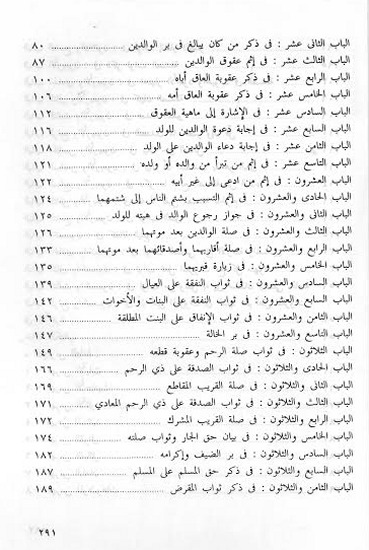 الباب الثانى عشر : فى ذكر من كان يبالغ فى بر الوالدين ........ ٨٠
الباب الثالث عشر : فى إثم عقوق الوالدين ........ ٨٧
الباب الرابع عشر : فى ذكر عقوبة العاق أباه ........ ١٠٠
الباب الخامس عشر : فى ذكر عقوبة العاق أمه ........ ١٠٦
الباب السادس عشر : فى الإشارة إلى ماهية العقوق ........ ١١٢
الباب السابع عشر : فى إجابة دعوة الوالدين للولد ........ ١١٦
الباب الثامن عشر : فى إجابة دعاء الوالدين على الولد ........ ١١٨
الباب التاسع عشر : فى إثم من تبرأ من والده أو ولده ........ ١٢١
الباب العشرون : فى إثم من ادعى إلى غير أبيه ........ ١٢٢
الباب الحادى والعشرون : فى إثم التسبب بشتم الناس إلى شتمهما ١٢٤
الباب الثانى والعشرون : فى جواز رجوع الوالد فى هبته للولد ........ ١٢٥
الباب الثالث والعشرون : فى صلة الوالدين بعد موتهما ........ ١٢٦
الباب الرابع والعشرون : فى صلة أقاربهما وأصدقائهما بعد موتهما ١٣٣
الباب الخامس والعشرون : فى زيارة قبريهما ........ ١٣٥
الباب السادس والعشرون : فى ثواب النفقة على العيال ........ ١٣٩
الباب السابع والعشرون : فى ثواب النفقة على البنات والأخوات ........ ١٤٢
الباب الثامن والعشرون : فى ثواب الإنفاق على البنت المطلقة ........ ١٤٦
الباب التاسع والعشرون : فى بر الخالة ........ ١٤٧
الباب الثلاثون : فى ثواب صلة الرحم وعقوبة قطعه ........ ١٤٩
الباب الحادى والثلاثون : فى ثواب الصدقة على ذي الرحم ........ ١٦٦
الباب الثانى والثلاثون : فى صلة القريب المقاطع ........ ١٦٩
الباب الثالث والثلاثون : فى ثواب الصدقة على ذي الرحم المعادي ........ ١٧١
الباب الرابع والثلاثون : فى صلة القريب المشرك ........ ١٧٢
الباب الخامس والثلاثون : فى بيان حق الجار وثواب صلته ........ ١٧٤
الباب السادس والثلاثون : فى بر الضيف وإكرامه ........ ١٨٢
الباب السابع والثلاثون : فى ذكر حق المسلم على المسلم ........ ١٨٧
الباب الثامن والثلاثون : فى ذكر ثواب المقرض ........ ١٨٩
٢٩١